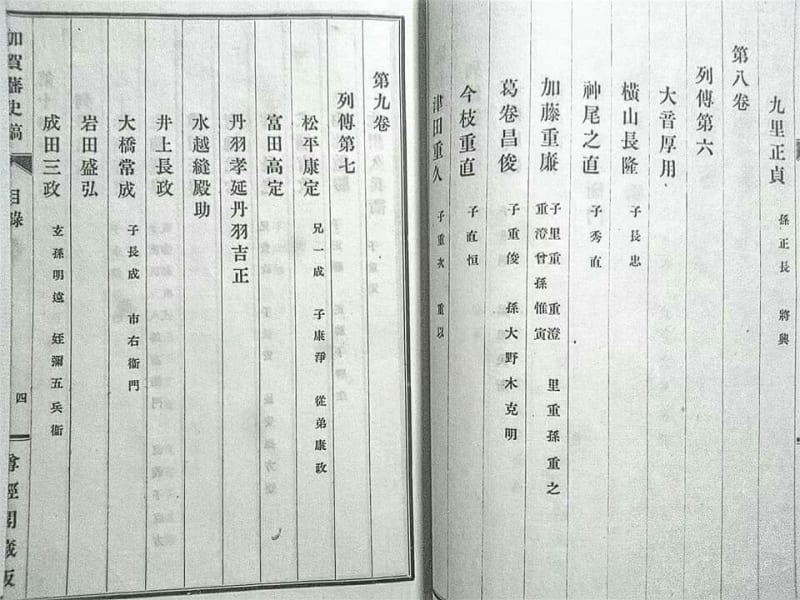 九里正貞 孫正長 將興
第八卷
列傳第六
大音厚用
橫山長隆 子長忠
神尾之直 子秀直
加藤重廉 子里重 重澄 里重孫重之
重澄曾孫惟寅
葛卷昌俊 子重俊 孫大野木克明
今枝重直 子直恒
津田重久 子重次 重以
第九卷
列傳第七
松平康定 兄一成 子康淨 從弟康政
富田高定
丹羽孝延丹羽吉正
水越縫殿助
井上長政
大橋常成 子長成 市右衞門
岩田盛弘
成田三政 玄孫明遠 姪彌五兵衞
加賀藩史稿 目錄 四 尊經閣藏版